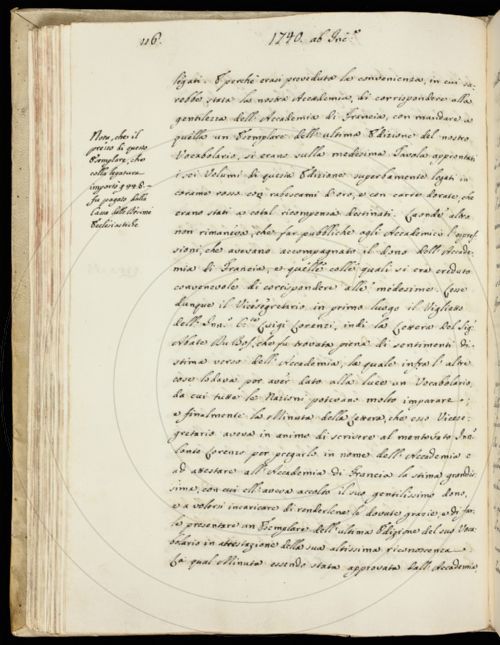 116.
1740. ab Inc.e
legati. E perchè erasi preveduta la convenienza, in cui sa-
rebbe stata la nostra Accademia, di corrispondere alla
gentilezza dell'Accademia di Francia, con mandare a
quella un Esemplare dell'ultima Edizione del nostro
Vocabolario, si erano sulla medesima Tavola approntati
i sei Volumi di questa Edizione superbamente legati in
corame rosso con rabescami d'oro, e con carte dorate, che
erano stati a cotal ricompensa destinati. Laonde altro
non rimaneva, che far pubbliche agli Accademici l'espres-
sioni, che avevano accompagnato il dono dell'Accade-
mia di Francia, e quelle colle quali si era creduto
convenevole di corrispondere alle medesime. Lesse
dunque il Vicesegretario in primo luogo il Viglietto
dell' Luigi Lorenzi, indi la Lettera del Sig.
Abate Du Bos, che fu trovata piena di sentimenti di
stima verso dell'Accademia, la quale infra l'altre
cose lodava per aver dato alla luce un Vocabolario,
da cui tutte le Nazioni potevano molto imparare;
e finalmente la Minuta della Lettera, che esso Vicese-
gretario aveva in animo di scrivere al mentovato
Lorenzi per pregarlo in nome dell'Accademia
ad attestare all'Accademia di Francia la stima grandis-
sima, con cui ell'aveva accolto il suo gentilissimo dono,
e a volersi incaricare di renderlene le dovute grazie, e di far-
le presentare un Esemplare dell'ultima Edizione del suo Voca-
bolario in attestazione della sua altissima riconoscenza.
La qual Minuta essendo stata approvata dall'Accademia
Nota, che il
prezzo di questo
Esemplare, che
colla legatura
importò
fu pagato dalla
Cassa delle
Ecclesiastiche